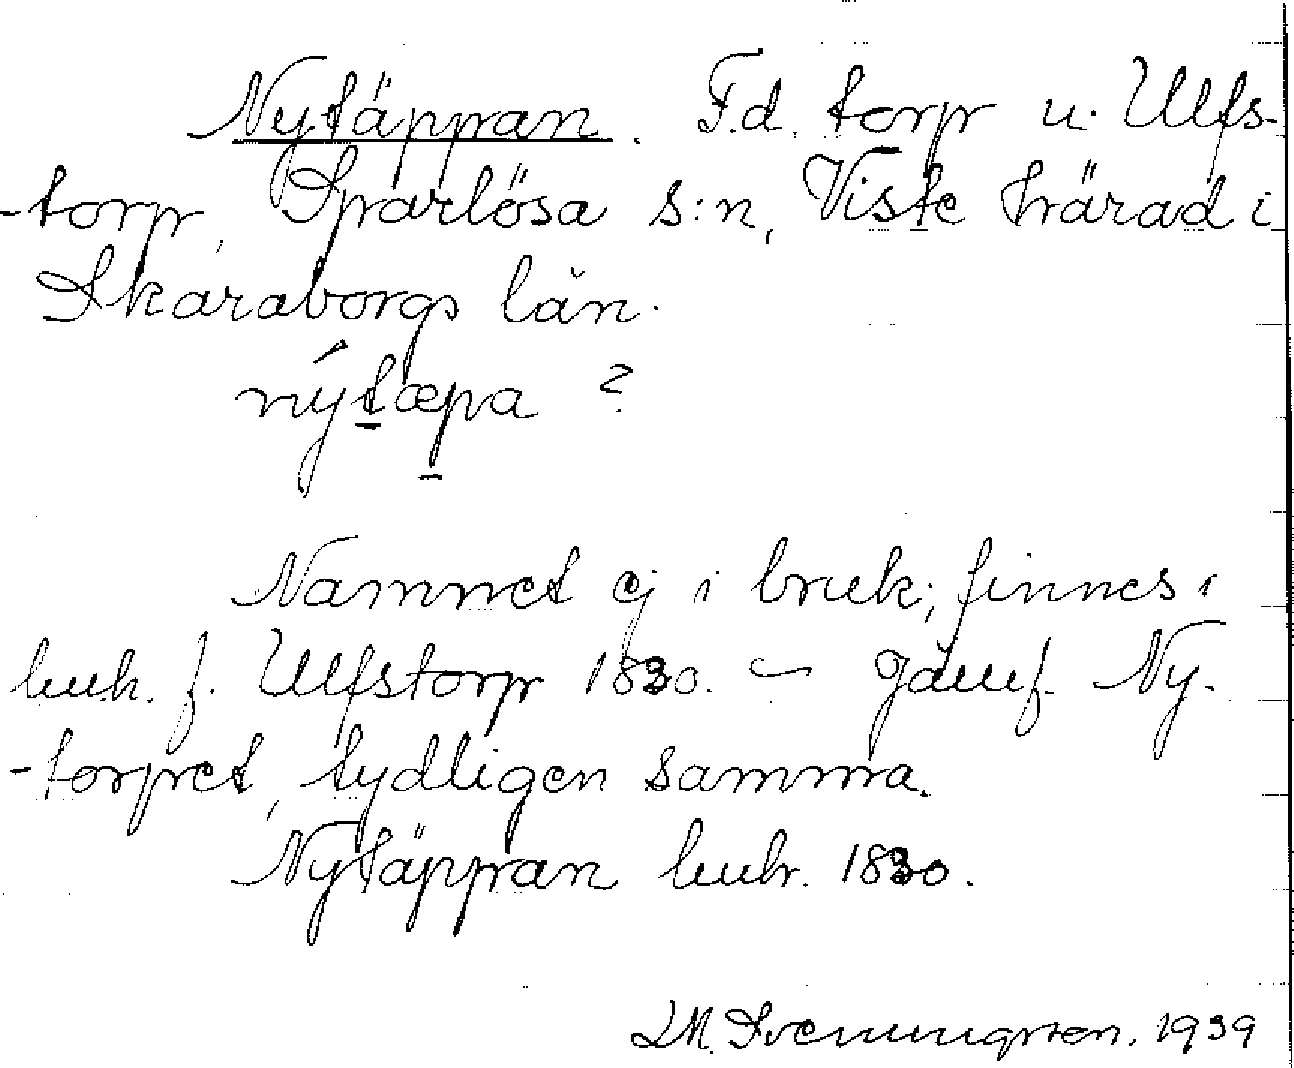 Nytäppan. F.d. torp u. Ulfs-
-torp, Sparlösa s:n, Viste härad i
Skaraborgs län.
nýtæpa ?
Namnet ej i bruk; finnes i
huh. f. Ulfstorp 1830. ~ Jämf. Ny-
-torpet, tydligen samma.
Nytäppan huh. 1830.
1939